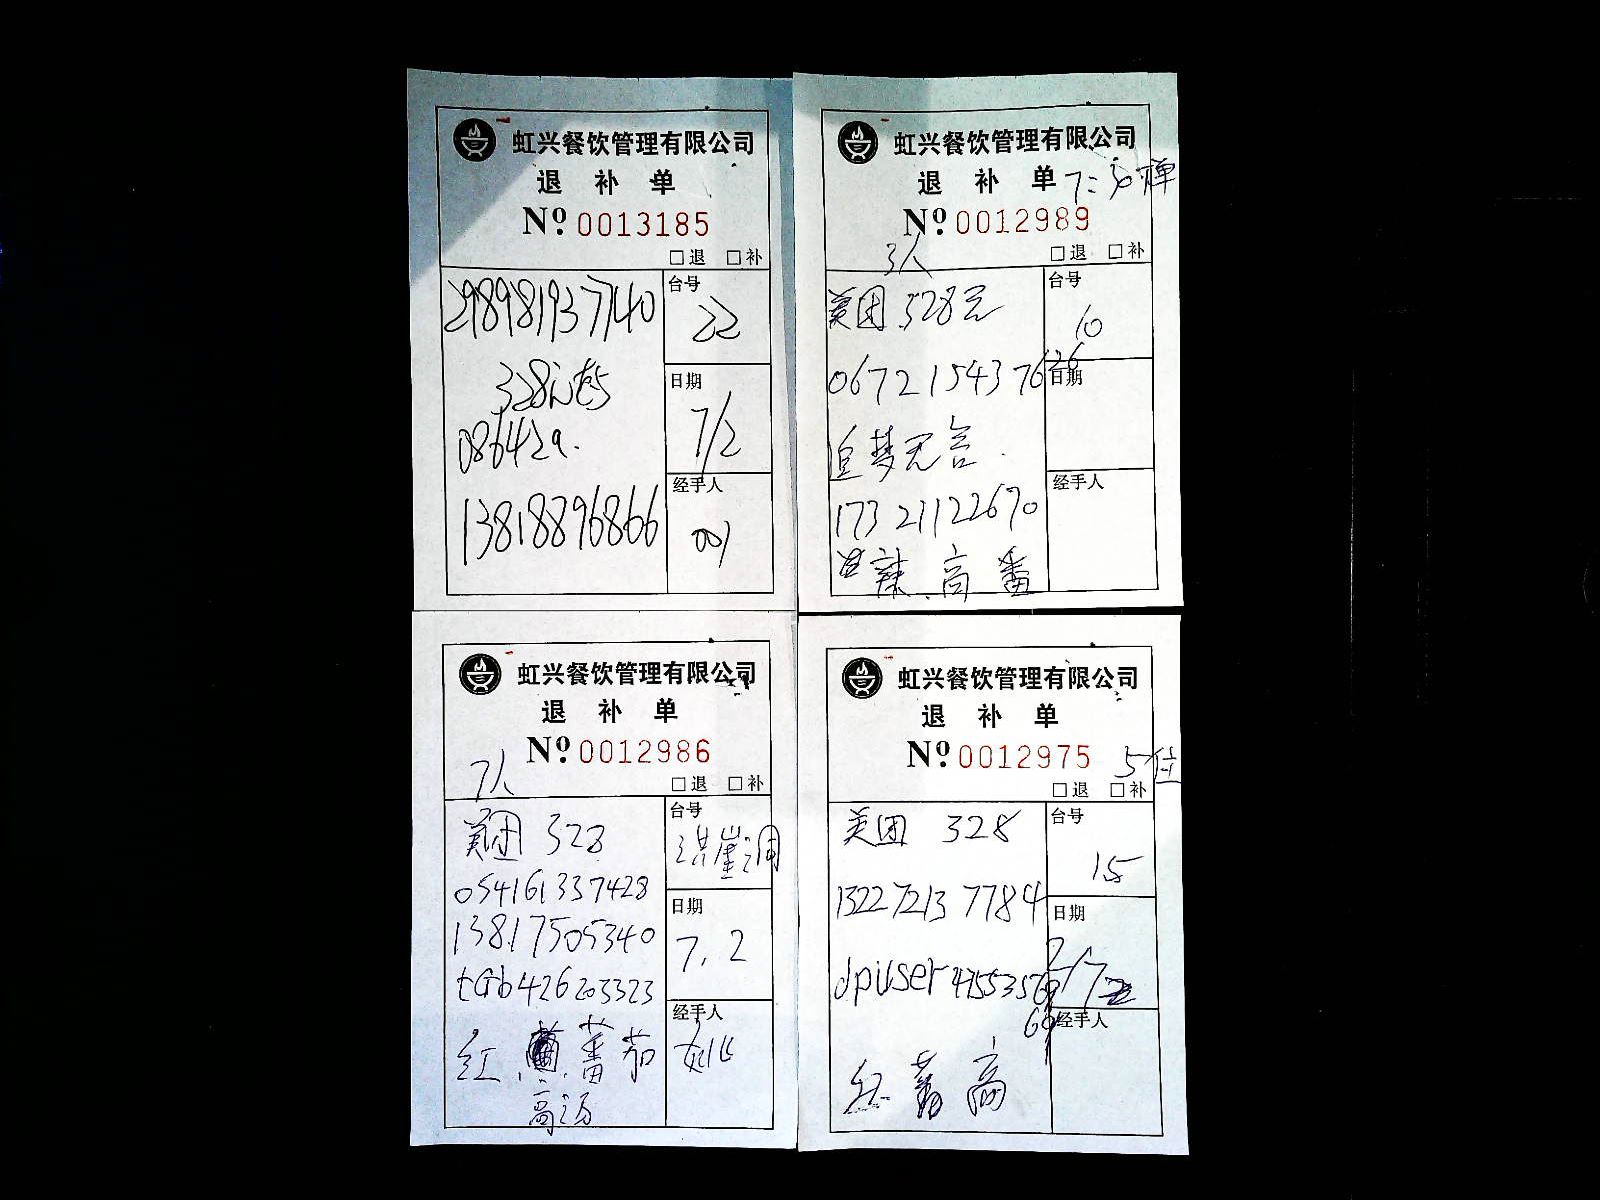 虹兴餐饮管理有限公司
退 补 单
Nº 0013185
□退 □补
298981937740
台号
22
328元套
086429.
日期
7/2
13818896866
经手人
001
虹兴餐饮管理有限公司
退 补 单
7:
Nº 0012989
3人
□退 □补
美团 328元
台号
10
067215437626
日期
追梦无言.
17321122670
经手人
辣 高 番
虹兴餐饮管理有限公司
退 补 单
Nº 0012986
7人
□退 □补
美团 328
台号
054161337428
13817505340
日期
7.2
tGb426203323
经手人
红 蕃茄
高汤
虹兴餐饮管理有限公司
退 补 单
Nº 0012975
5位
□退 □补
美团 328
台号
15
132272137784
日期
dpuser
经手人
红 蕃 高